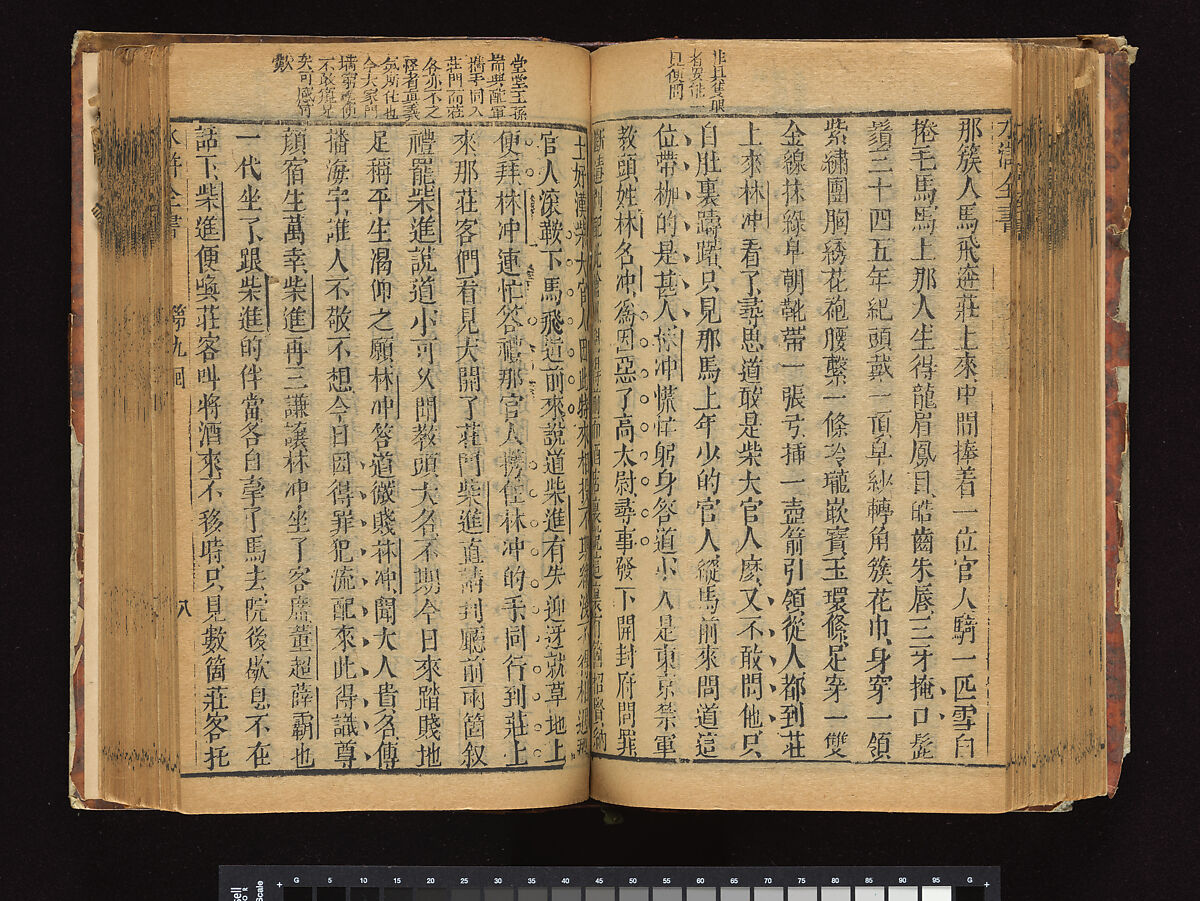 非具隻眼
見便問
水滸全書
那簇人馬飛迸莊上來中間捧着一位官人騎一匹雪白
捲毛馬馬上那人生得龍眉鳳目皓齒朱唇三牙掩口髭
鬚三十四五年紀頭戴一頂皁紗轉角簇花巾身穿一領
紫繡團胸綉花袍腰繫一條玲瓏嵌寶玉環絛足穿一雙
金線抹綠皁朝靴帶一張弓插一壺箭引領從人都到莊
上來林冲看了尋思道敢是柴大官人麽又不敢問他只
自肚裏躊躇只見那馬上年少的官人縱馬前來問道這
位帶枷的是甚人林冲慌忙躬身答道小人是東京禁軍
教頭姓林名冲爲因惡了高太尉尋事發下開封府問罪
斷遣刺配此酒店裏說這裏有個招賢納
堂堂王孫
與配軍
攜手同入
莊門而莊
客亦不之
怪者眞義
今大家門
不敢進見
歎
士好漢柴大官人因此特來相投不期緣淺不得相遇那
官人滾鞍下馬飛迸前來說道柴進有失迎迓就草地上
便拜林冲連忙答禮那官人攜住林冲的手同行到莊上
來那莊客們看見大開了莊門柴進直請到廳前兩箇敘
禮罷柴進說道小可久聞教頭大名不期今日來踏賤地
足稱平生渴仰之願林冲答道微賤林冲聞大人貴名傳
播海宇誰人不敬不想今日因得罪犯流配來此得識尊
顏宿生萬幸柴進再三謙讓林冲坐了客席董超薛霸也
一代坐了跟柴進的伴當各自牽了馬去院後歇息不在
話下柴進便喚莊客叫將酒來不移時只見數箇莊客托
水滸全書 第九回 八
0 5 10 15 20 25 30 35 40 45 50 55 60 65 70 75 80 85 90 95